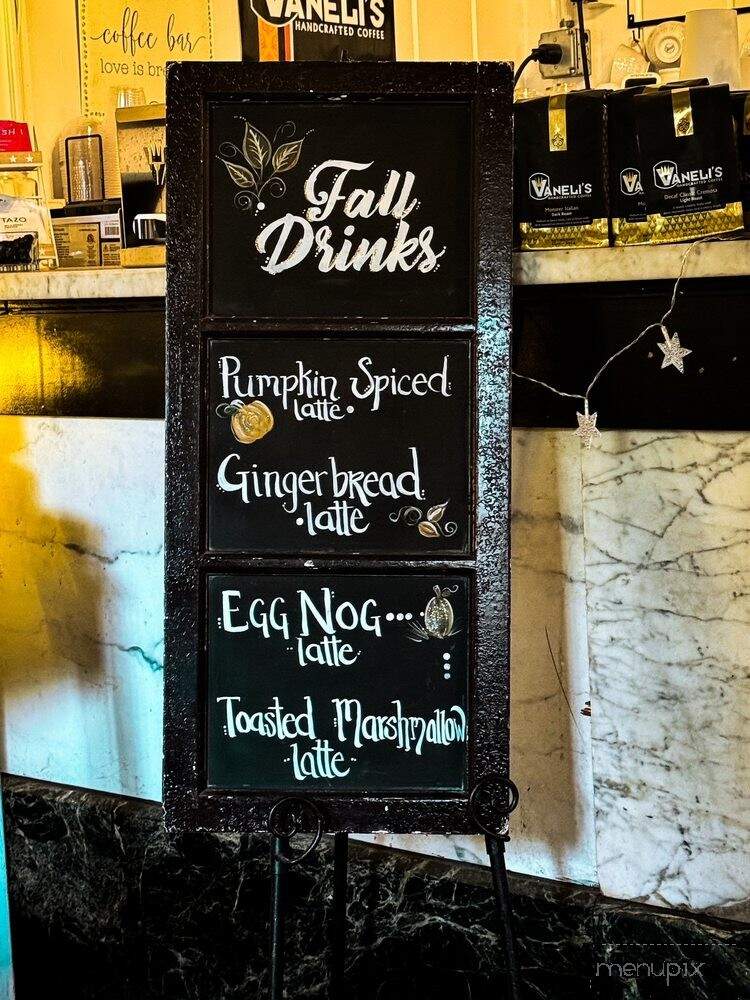 coffee bar
love is
VANELI'S
HANDCRAFTED COFFEE
Fall
Drinks
Pumpkin Spiced
latte
Gingerbread
latte
Egg Nog...
latte
Toasted Marshmallow
latte
TAZO
VANELI'S
HANDCRAFTED COFFEE
Dark Roast
VANELI'S
HANDCRAFTED COFFEE
Decaf Classic Cremoso
Light Roast
menupix